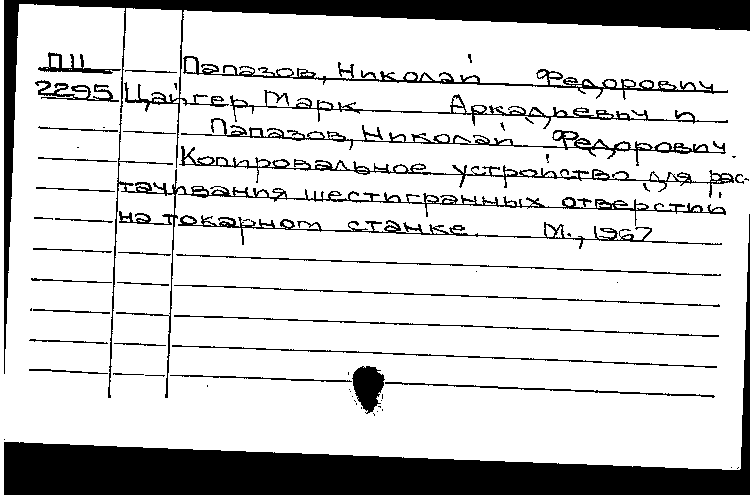 П11 Папазов, Николай Федорович
2295 Цайгер, Марк Аркадьевич и
Папазов, Николай Федорович.
Копировальное устройство для рас-
тачивания шестигранных отверстий
на токарном станке. М., 1967